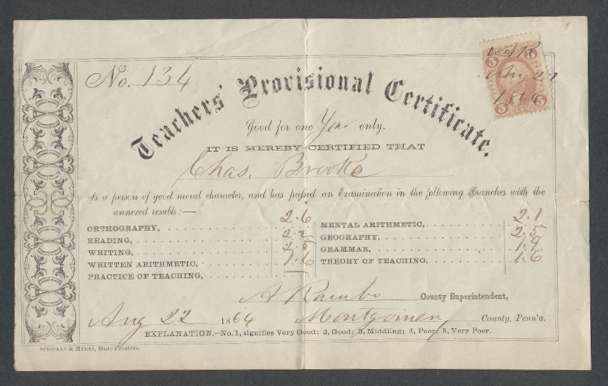 No. 134
5 5
Aug 22
1866
5 5
Teachers' Provisional Certificate.
Good for one Year only.
IT IS HEREBY CERTIFIED THAT
Chas. Brooke
Is a person of good moral character, and has passed an Examination in the following Branches with the
annexed results:—
ORTHOGRAPHY, 2.6
READING, 2.2
WRITING, 2.5
WRITTEN ARITHMETIC, 1.6
PRACTICE OF TEACHING, —
MENTAL ARITHMETIC, 2.1
GEOGRAPHY, 2.5
GRAMMAR, 1.9
THEORY OF TEACHING, 1.6
A Rambo County Superintendent,
Aug 22 1866 Montgomery County, Penn'a.
EXPLANATION.—No. 1, signifies Very Good; 2, Good; 3, Middling; 4, Poor; 5, Very Poor.
SINGERLY & MYERS, State Printers.